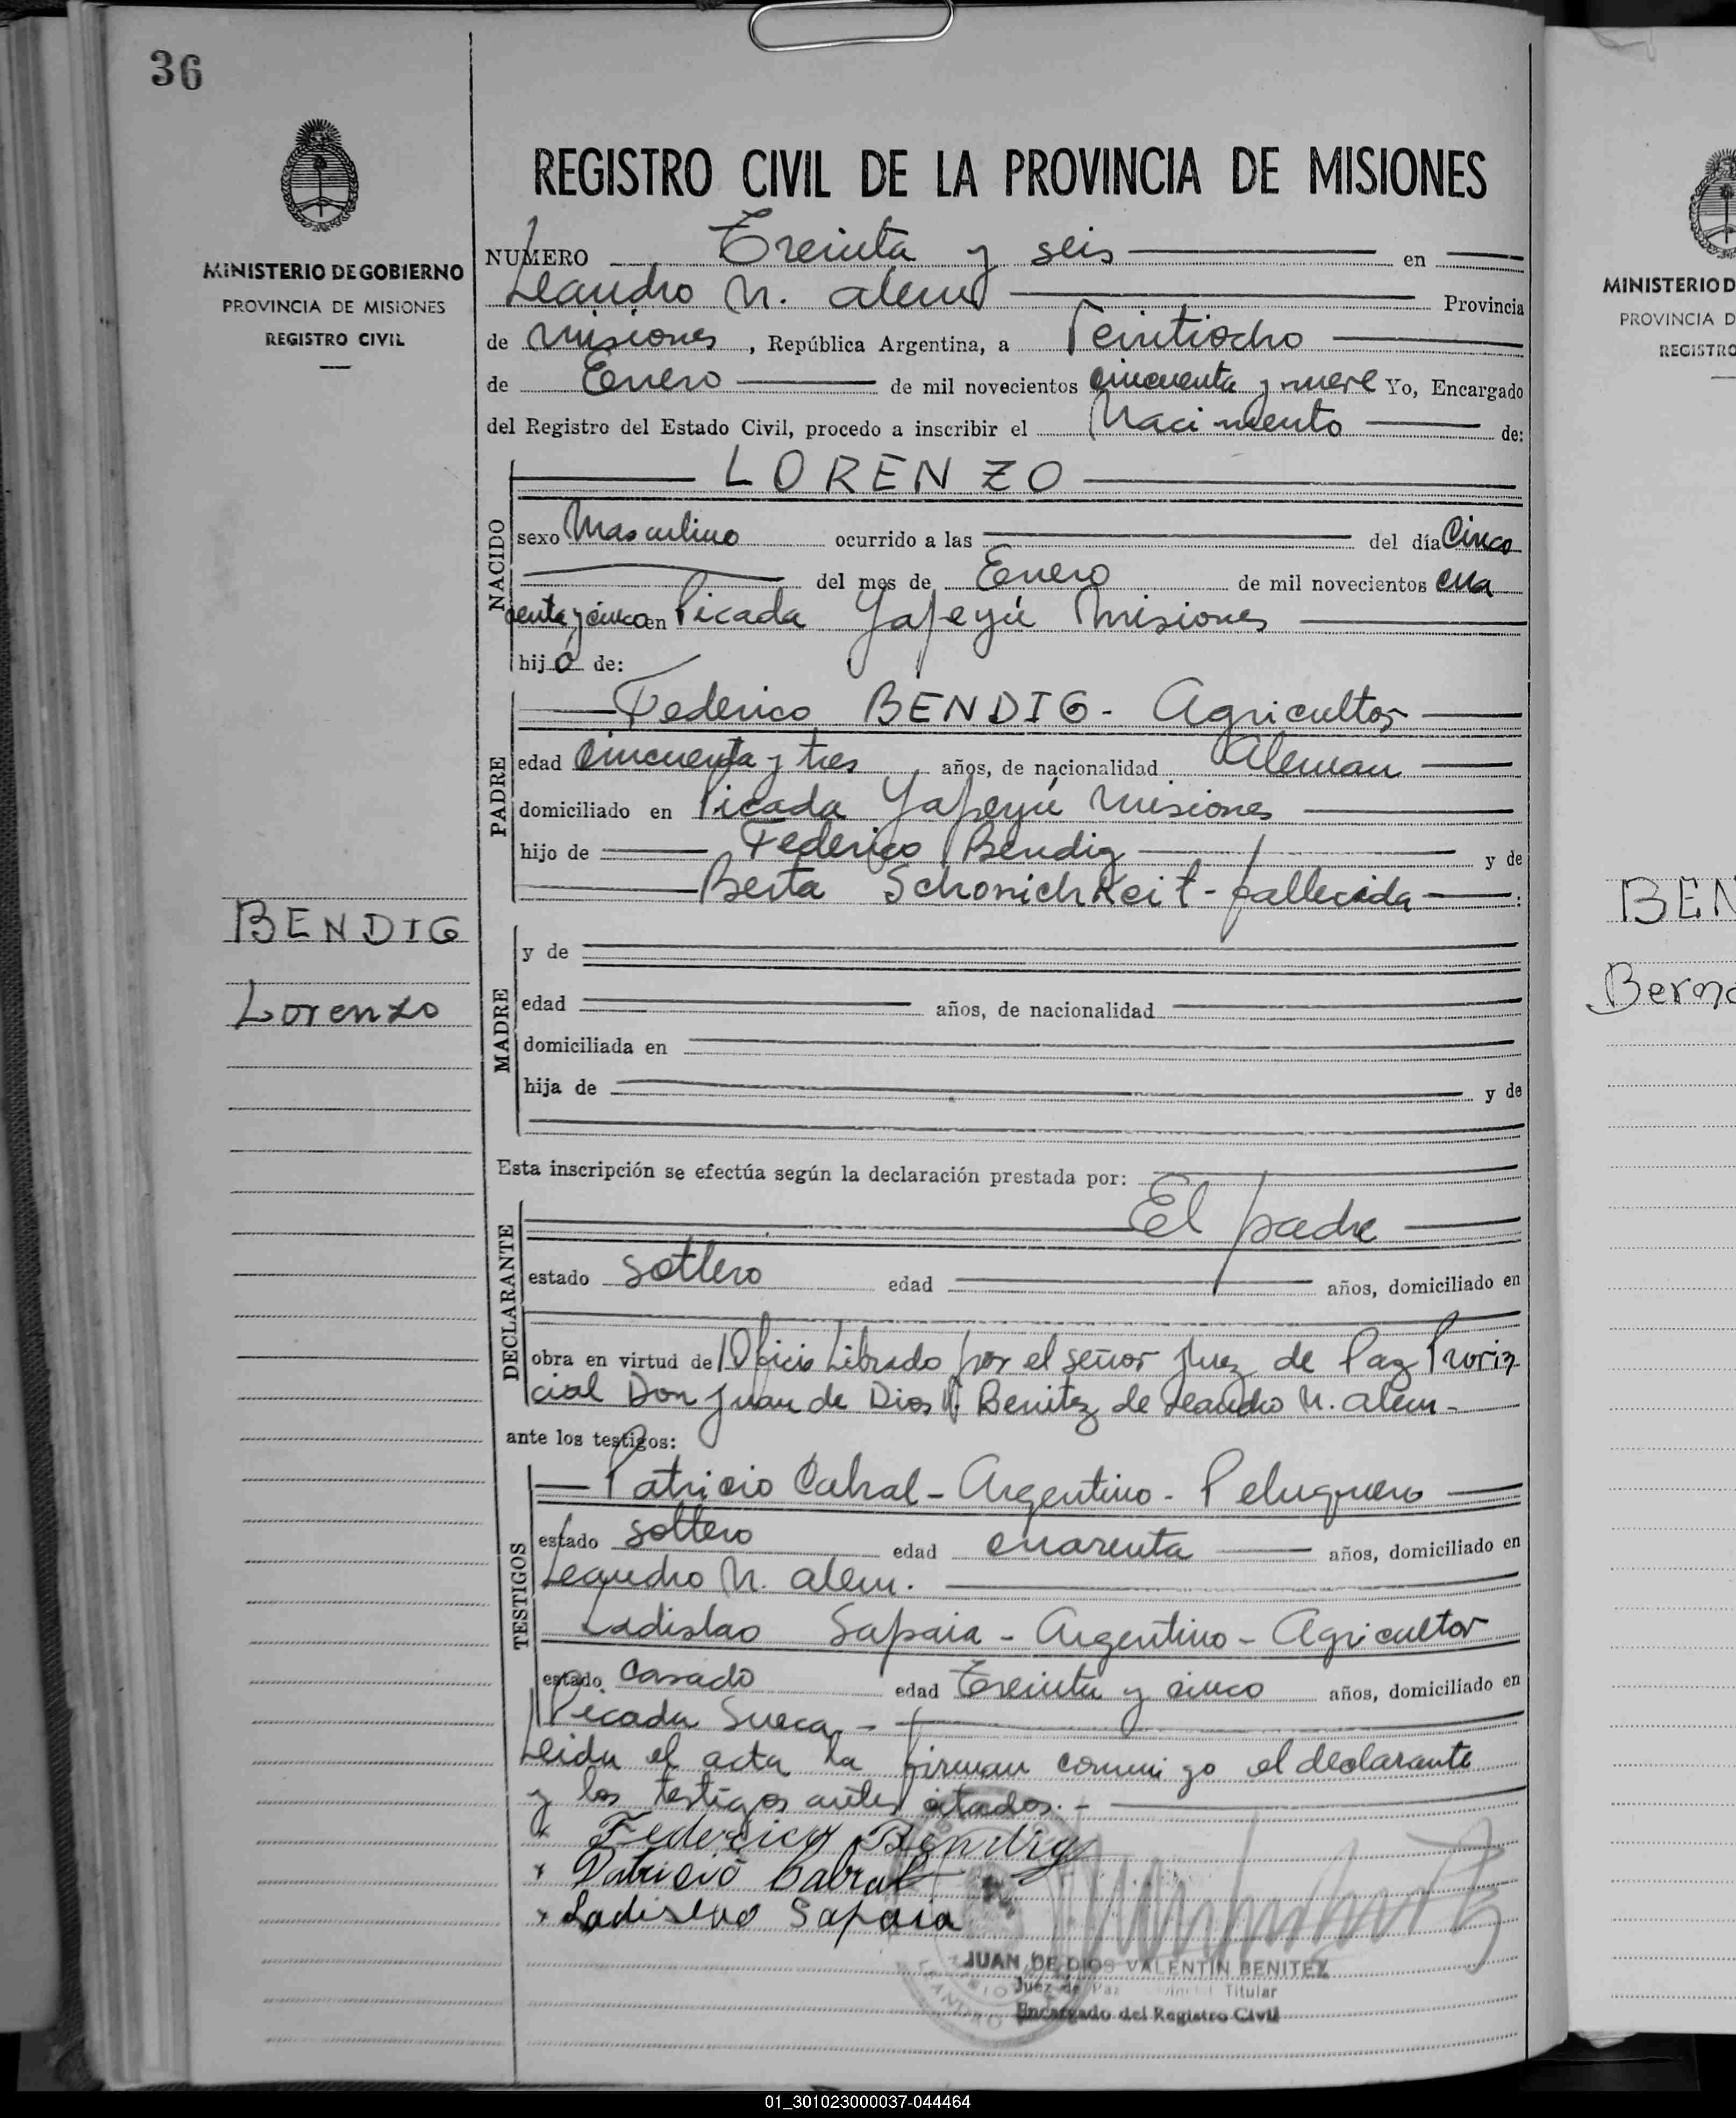 36
MINISTERIO DE GOBIERNO
PROVINCIA DE MISIONES
REGISTRO CIVIL
REGISTRO CIVIL DE LA PROVINCIA DE MISIONES
NUMERO Treinta y seis en
Leandro N. Alem Provincia
de Misiones, República Argentina, a Veintiocho
de Enero de mil novecientos cincuenta y nueve Yo, Encargado
del Registro del Estado Civil, procedo a inscribir el Nacimiento de:
NACIDO
LORENZO
sexo Masculino ocurrido a las del día Cinco
del mes de Enero de mil novecientos cua
renta y cinco en Picada Yapeyú Misiones
hijo de:
PADRE
Federico BENDIG - Agricultor
edad Cincuenta y tres años, de nacionalidad Aleman
domiciliado en Picada Yapeyú Misiones
hijo de Federico Bendig y de
Berta Schonichkeit - fallecida
BENDIG
Lorenzo
MADRE
y de
edad años, de nacionalidad
domiciliada en
hija de y de
Esta inscripción se efectúa según la declaración prestada por:
DECLARANTE
El padre
estado soltero edad años, domiciliado en
obra en virtud de Oficio Librado por el señor Juez de Paz Provin
cial Don Juan de Dios V. Benitez de Leandro N. Alem -
ante los testigos:
TESTIGOS
Patricio Cabral - Argentino - Peluquero
estado soltero edad cuarenta años, domiciliado en
Leandro N. Alem.
Ladislao Sapaia - Argentino - Agricultor
estado Casado edad Treinta y cinco años, domiciliado en
Picada Sueca. -
Leida el acta la firman conmigo el declarante
y los testigos antes citados. -
Federico Bendig
Patricio Cabral
Ladislao Sapaia
JUAN DE DIOS VALENTIN BENITEZ
Juez de Paz Titular
Encargado del Registro Civil
MINISTERIO D
PROVINCIA D
REGISTRO
BEN
Berna
01_301023000037-044464